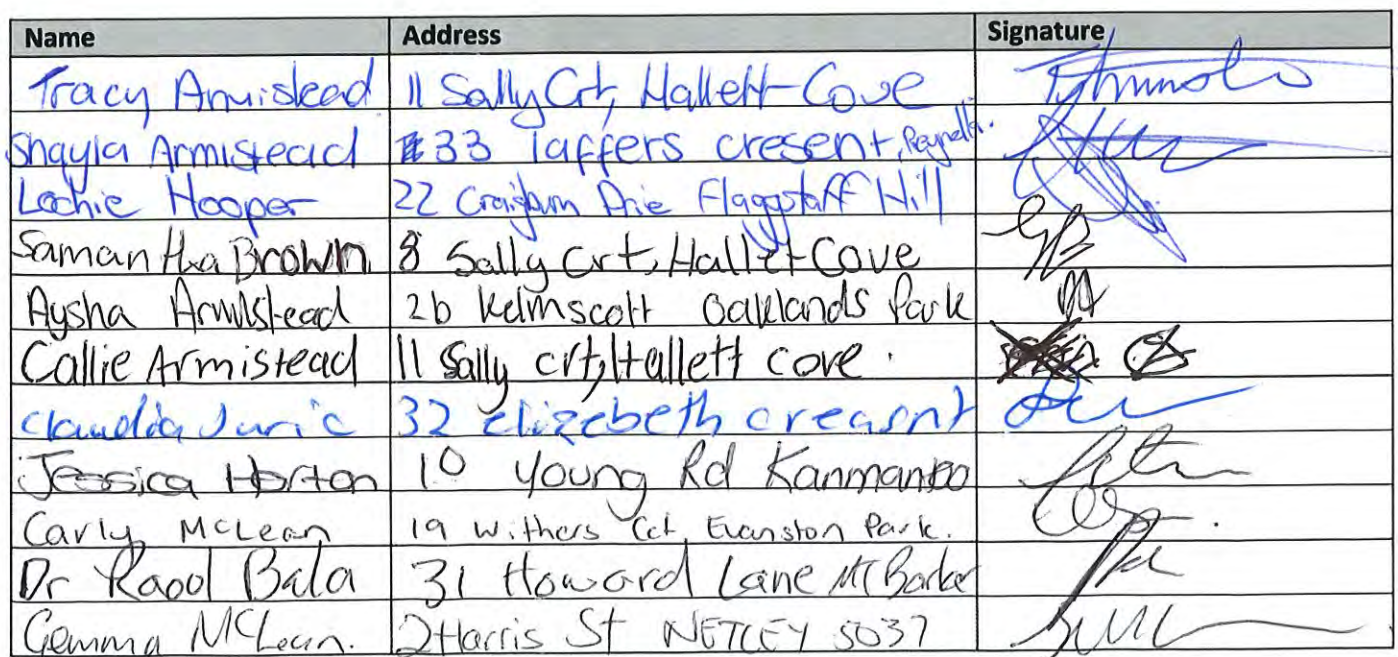 Name Address Signature
Tracy Armistead 11 Sally Crt, Hallett Cove
Shayla Armistead 33 Taffers cresent, Reynella.
Lochie Hooper 22 Craigburn Drie Flaggstaff Hill
Samantha Brown 8 Sally Crt, Hallet Cove
Aysha Armistead 2b Kelmscott Oaklands Park
Callie Armistead 11 Sally crt, Hallett cove.
claudia Juric 32 elizebeth creasnt
Jessica Horton 10 Young Rd Kanmantoo
Carly McLean 19 Withers Cct, Evanston Park.
Dr Raool Bala 31 Howard Lane Mt Barker
Gemma McLean. 2 Harris St NETLEY 5037